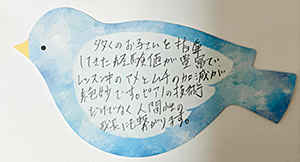 多くのお子さんを指導
してきた経験値が豊富で、
レッスン中のアメとムチの加減が
絶妙です。ピアノの技術
だけでなく人間性の
成長にも繋がります。